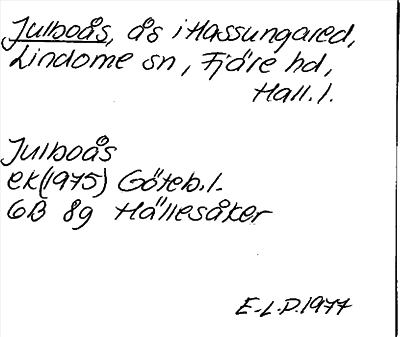 Julboås, ås i Hassungared,
Lindome sn, Fjäre hd,
Hall.l.
Julboås
ek(1975) Göteb.l.
6B 8g Hällesåker
E-L.P.1977